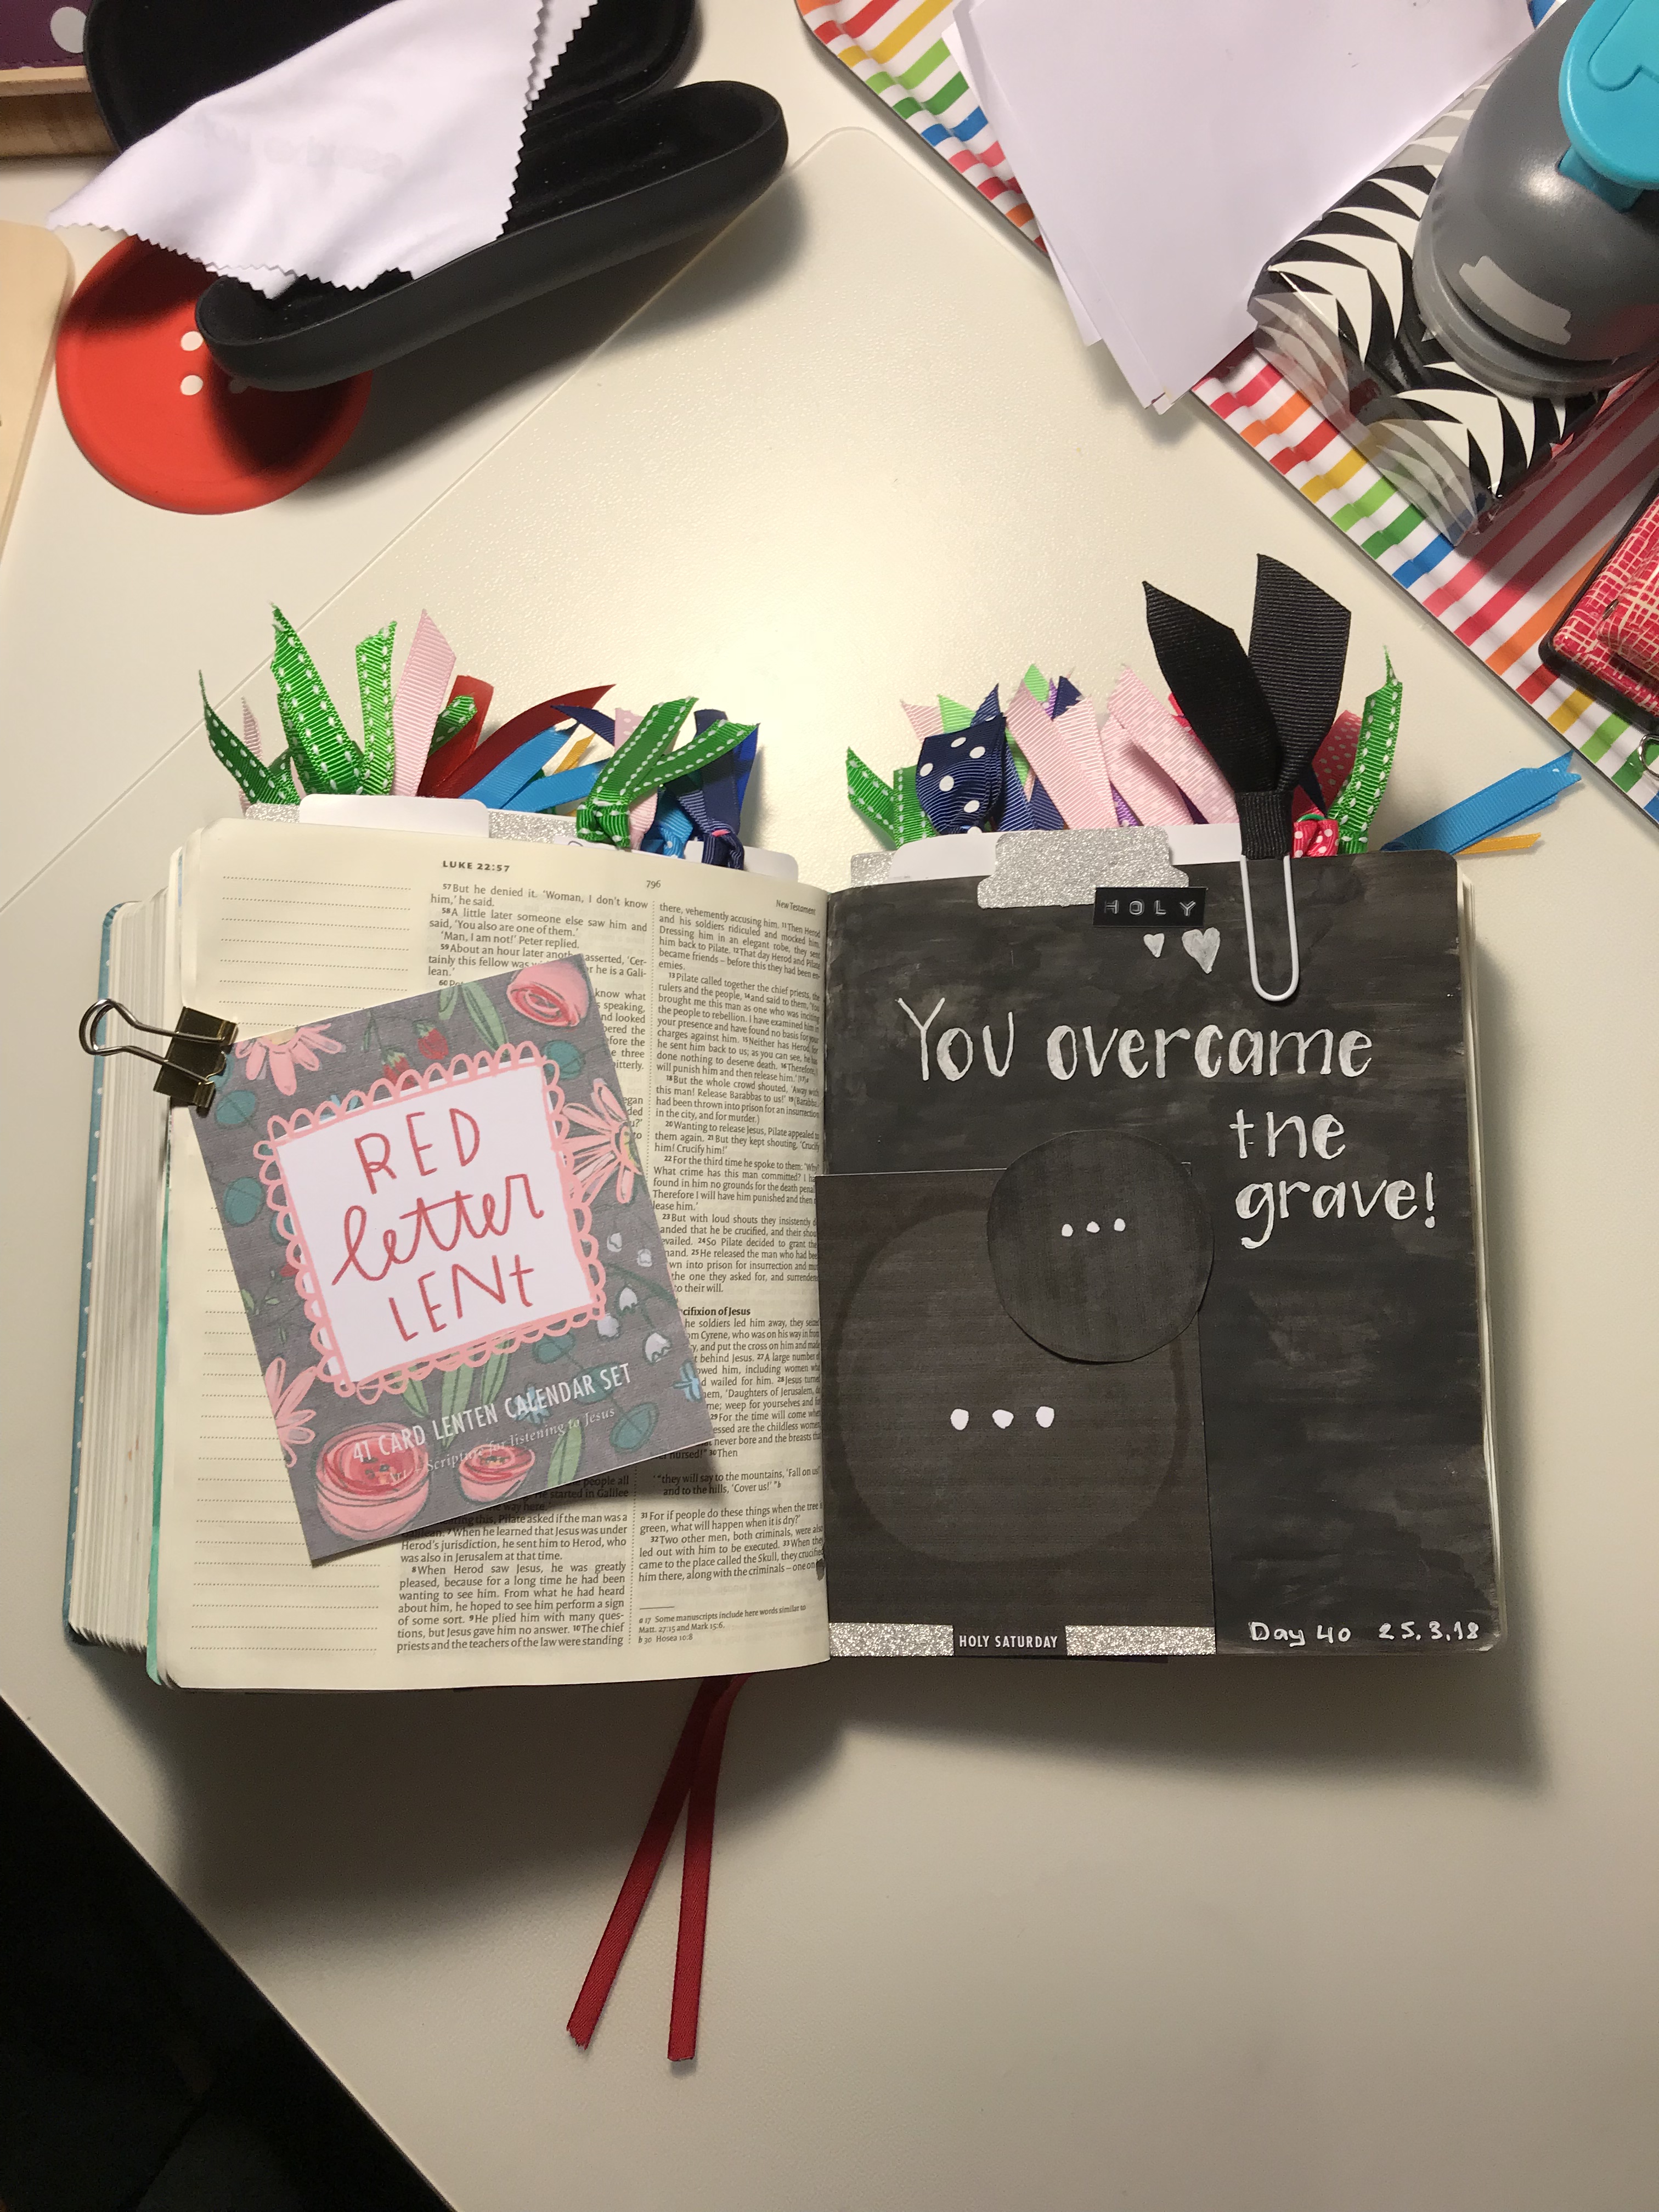 LUKE 22:57
796
New Testament
57 But he denied it. 'Woman, I don't know
him,' he said.
58 A little later someone else saw him and
said, 'You also are one of them.'
'Man, I am not!' Peter replied.
59 About an hour later another asserted, 'Cer-
tainly this fellow was
r he is a Gali-
lean.'
60
know what
speaking,
nd looked
bered the
efore the
e three
bitterly.
egan
ded
RED
letter
LENt
41 CARD LENTEN CALENDAR SET
Art + Scripture for listening to Jesus
people all
started in Galilee
way here.'
this, Pilate asked if the man was a
7 When he learned that Jesus was under
Herod's jurisdiction, he sent him to Herod, who
was also in Jerusalem at that time.
8 When Herod saw Jesus, he was greatly
pleased, because for a long time he had been
wanting to see him. From what he had heard
about him, he hoped to see him perform a sign
of some sort. 9 He plied him with many ques-
tions, but Jesus gave him no answer. 10 The chief
priests and the teachers of the law were standing
there, vehemently accusing him. 11 Then Herod
and his soldiers ridiculed and mocked him.
Dressing him in an elegant robe, they sent
him back to Pilate. 12 That day Herod and Pilate
became friends – before this they had been en-
emies.
13 Pilate called together the chief priests, the
rulers and the people, 14 and said to them, 'You
brought me this man as one who was inciting
the people to rebellion. I have examined him in
your presence and have found no basis for your
charges against him. 15 Neither has Herod, for
he sent him back to us; as you can see, he has
done nothing to deserve death. 16 Therefore, I
will punish him and then release him.'
18 But the whole crowd shouted, 'Away with
this man! Release Barabbas to us!' 19 (Barabbas
had been thrown into prison for an insurrection
in the city, and for murder.)
20 Wanting to release Jesus, Pilate appealed to
them again. 21 But they kept shouting, 'Crucify
him! Crucify him!'
22 For the third time he spoke to them: 'Why?
What crime has this man committed? I have
found in him no grounds for the death penal
Therefore I will have him punished and then
lease him.'
23 But with loud shouts they insistently
anded that he be crucified, and their shou
evailed. 24 So Pilate decided to grant the
mand. 25 He released the man who had bee
own into prison for insurrection and mu
the one they asked for, and surrendere
to their will.
cifixion of Jesus
he soldiers led him away, they seized
om Cyrene, who was on his way in from
y, and put the cross on him and made
t behind Jesus. 27 A large number of
owed him, including women who
d wailed for him. 28 Jesus turned
em, 'Daughters of Jerusalem, do
me; weep for yourselves and fo
29 For the time will come when
essed are the childless women,
never bore and the breasts tha
nursed!' 30 Then
' "they will say to the mountains, 'Fall on us!'
and to the hills, 'Cover us!' " b
31 For if people do these things when the tree is
green, what will happen when it is dry?'
32 Two other men, both criminals, were also
led out with him to be executed. 33 When they
came to the place called the Skull, they crucified
him there, along with the criminals – one on
a 17 Some manuscripts include here words similar to
Matt. 27:15 and Mark 15:6.
b 30 Hosea 10:8
HOLY
You overcame
the
grave!
...
...
HOLY SATURDAY
Day 40 25.3.18